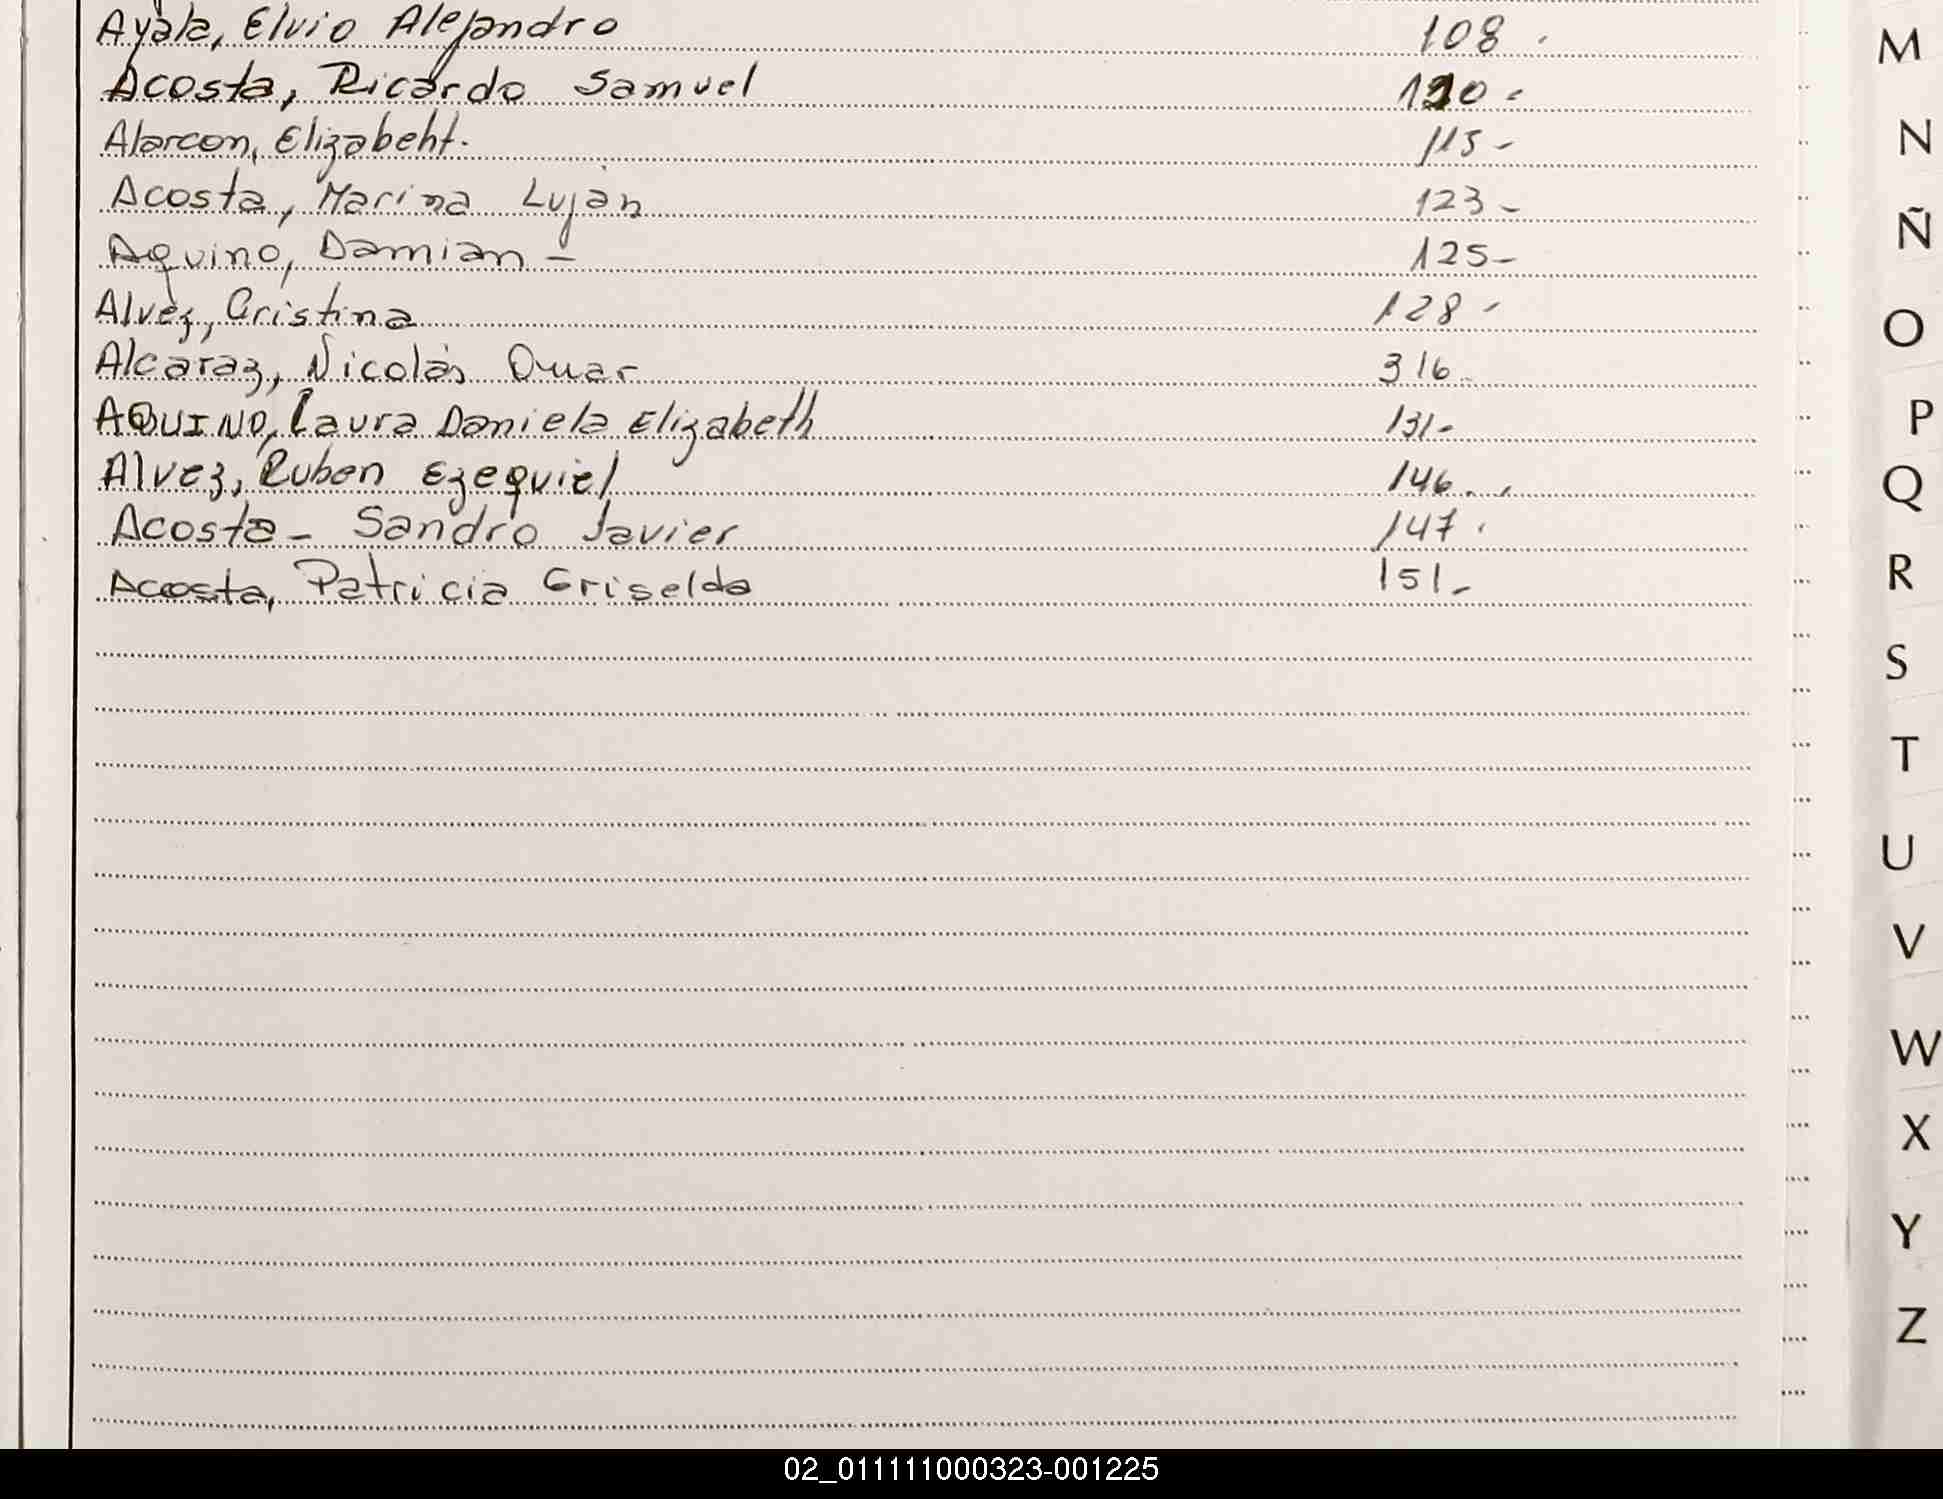 Ayala, Elvio Alejandro 108.
Acosta, Ricardo Samuel 110.
Alarcon, Elizabeht. 115-
Acosta, Marina Luján 123-
Aquino, Damian - 125-
Alvez, Cristina 128-
Alcaraz, Nicolás Omar 316.
AQUINO, Laura Daniela Elizabeth 131-
Alvez, Ruben Ezequiel 146.
Acosta - Sandro Javier 147.
Acosta, Patricia Griselda 151-
M
N
Ñ
O
P
Q
R
S
T
U
V
W
X
Y
Z
02_011111000323-001225